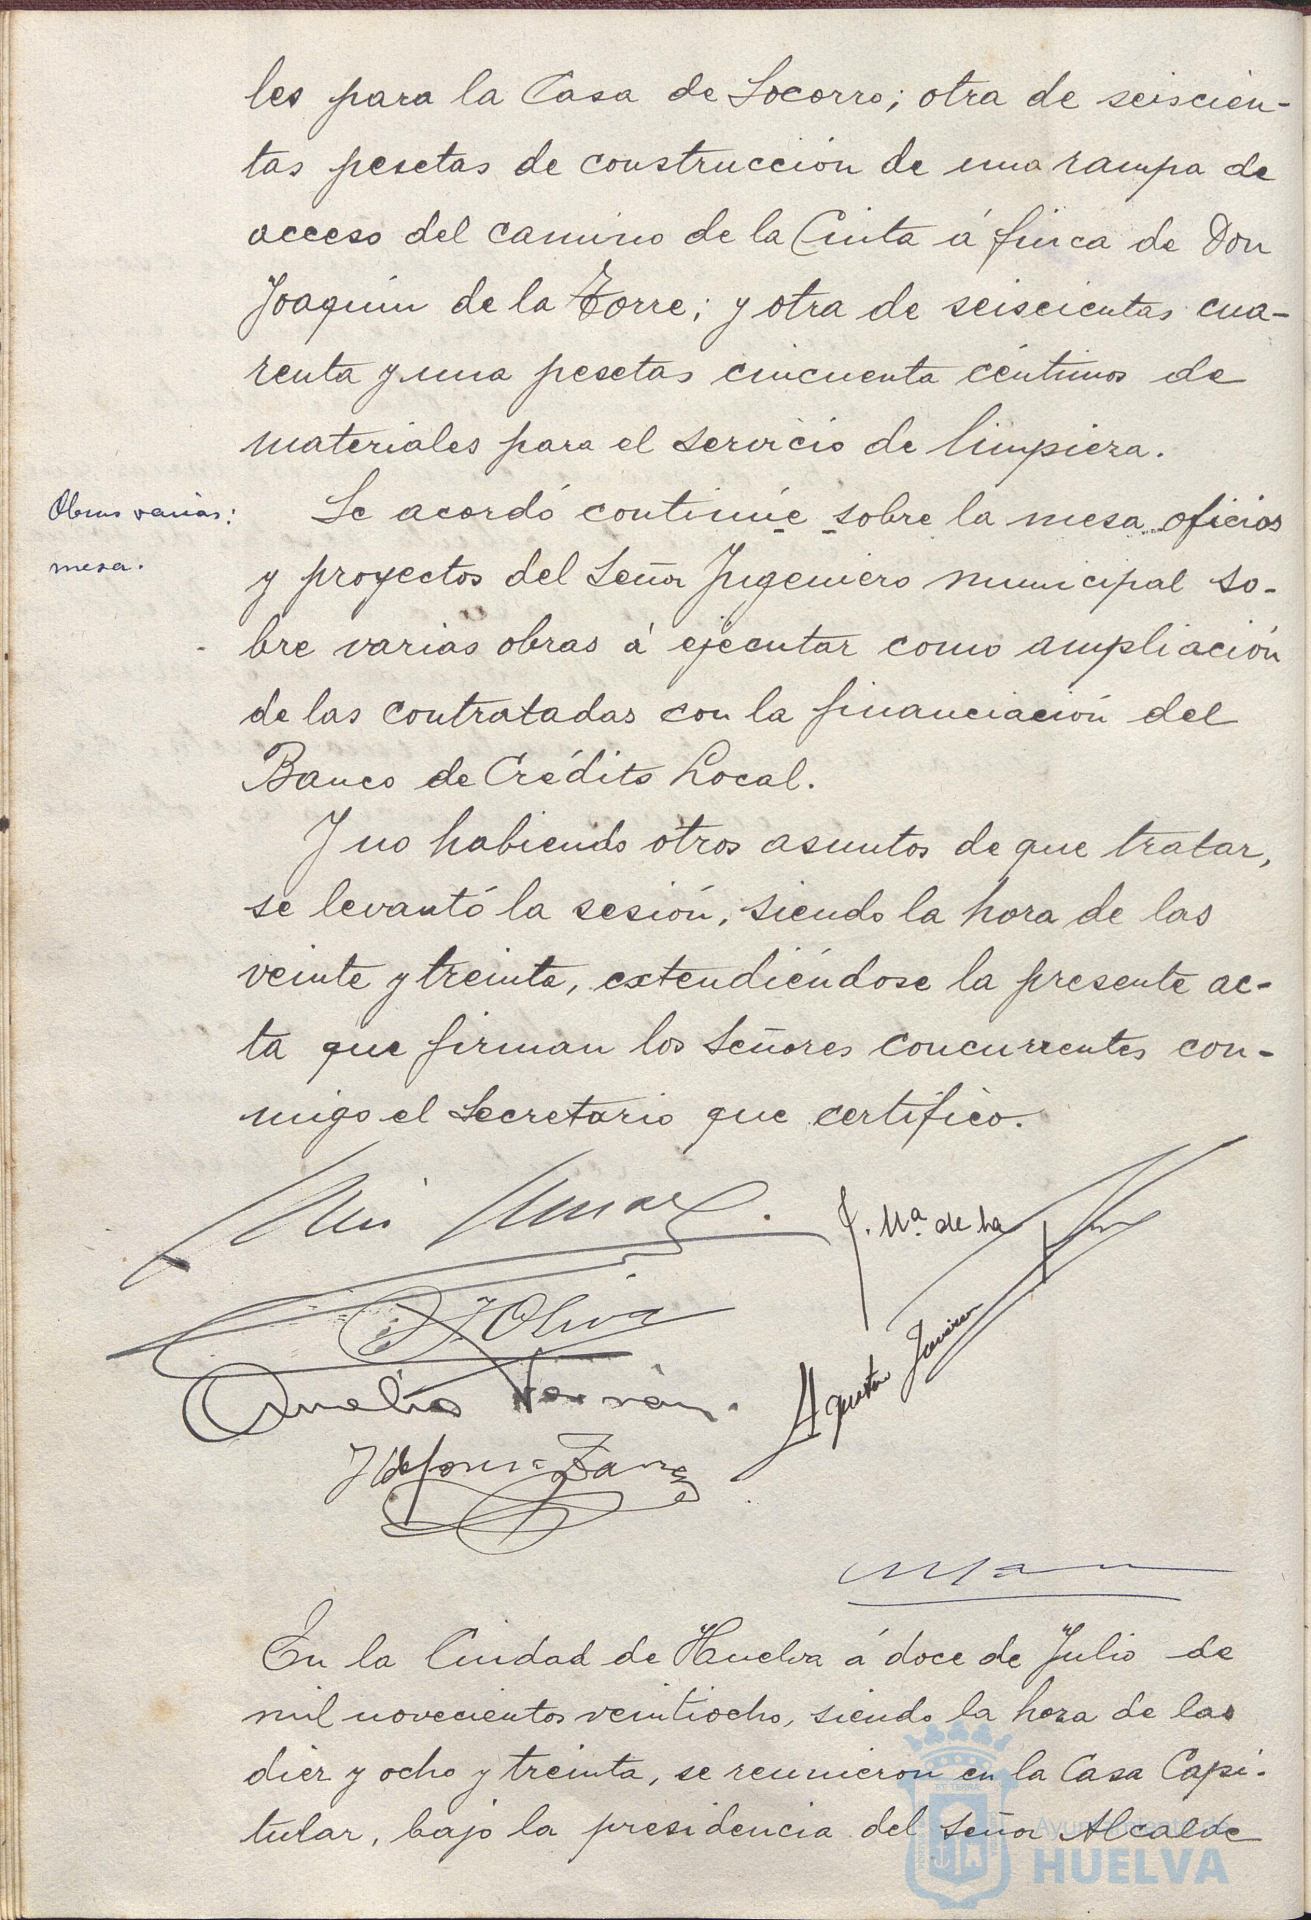 les para la Casa de Socorro; otra de seiscien-
tas pesetas de construcción de una rampa de
acceso del camino de la Cinta á finca de Don
Joaquin de la Torre; y otra de seiscientas cua-
renta y una pesetas cincuenta céntimos de
materiales para el servicio de limpieza.
Obras varias:
mesa.
Se acordó continúe sobre la mesa oficios
y proyectos del Señor Ingeniero municipal so-
bre varias obras á ejecutar como ampliación
de las contratadas con la financiación del
Banco de Crédito Local.
Y no habiendo otros asuntos de que tratar,
se levantó la sesión, siendo la hora de las
veinte y treinta, extendiéndose la presente ac-
ta que firman los Señores concurrentes con-
migo el Secretario que certifico.
J. Mª. de la
J Oliva
Agustin
Amelio
Ildefonso
En la Ciudad de Huelva á doce de Julio de
mil novecientos veintiocho, siendo la hora de las
diez y ocho y treinta, se reunieron en la Casa Capi-
tular, bajo la presidencia del Señor Alcalde
Ayuntamiento de
HUELVA